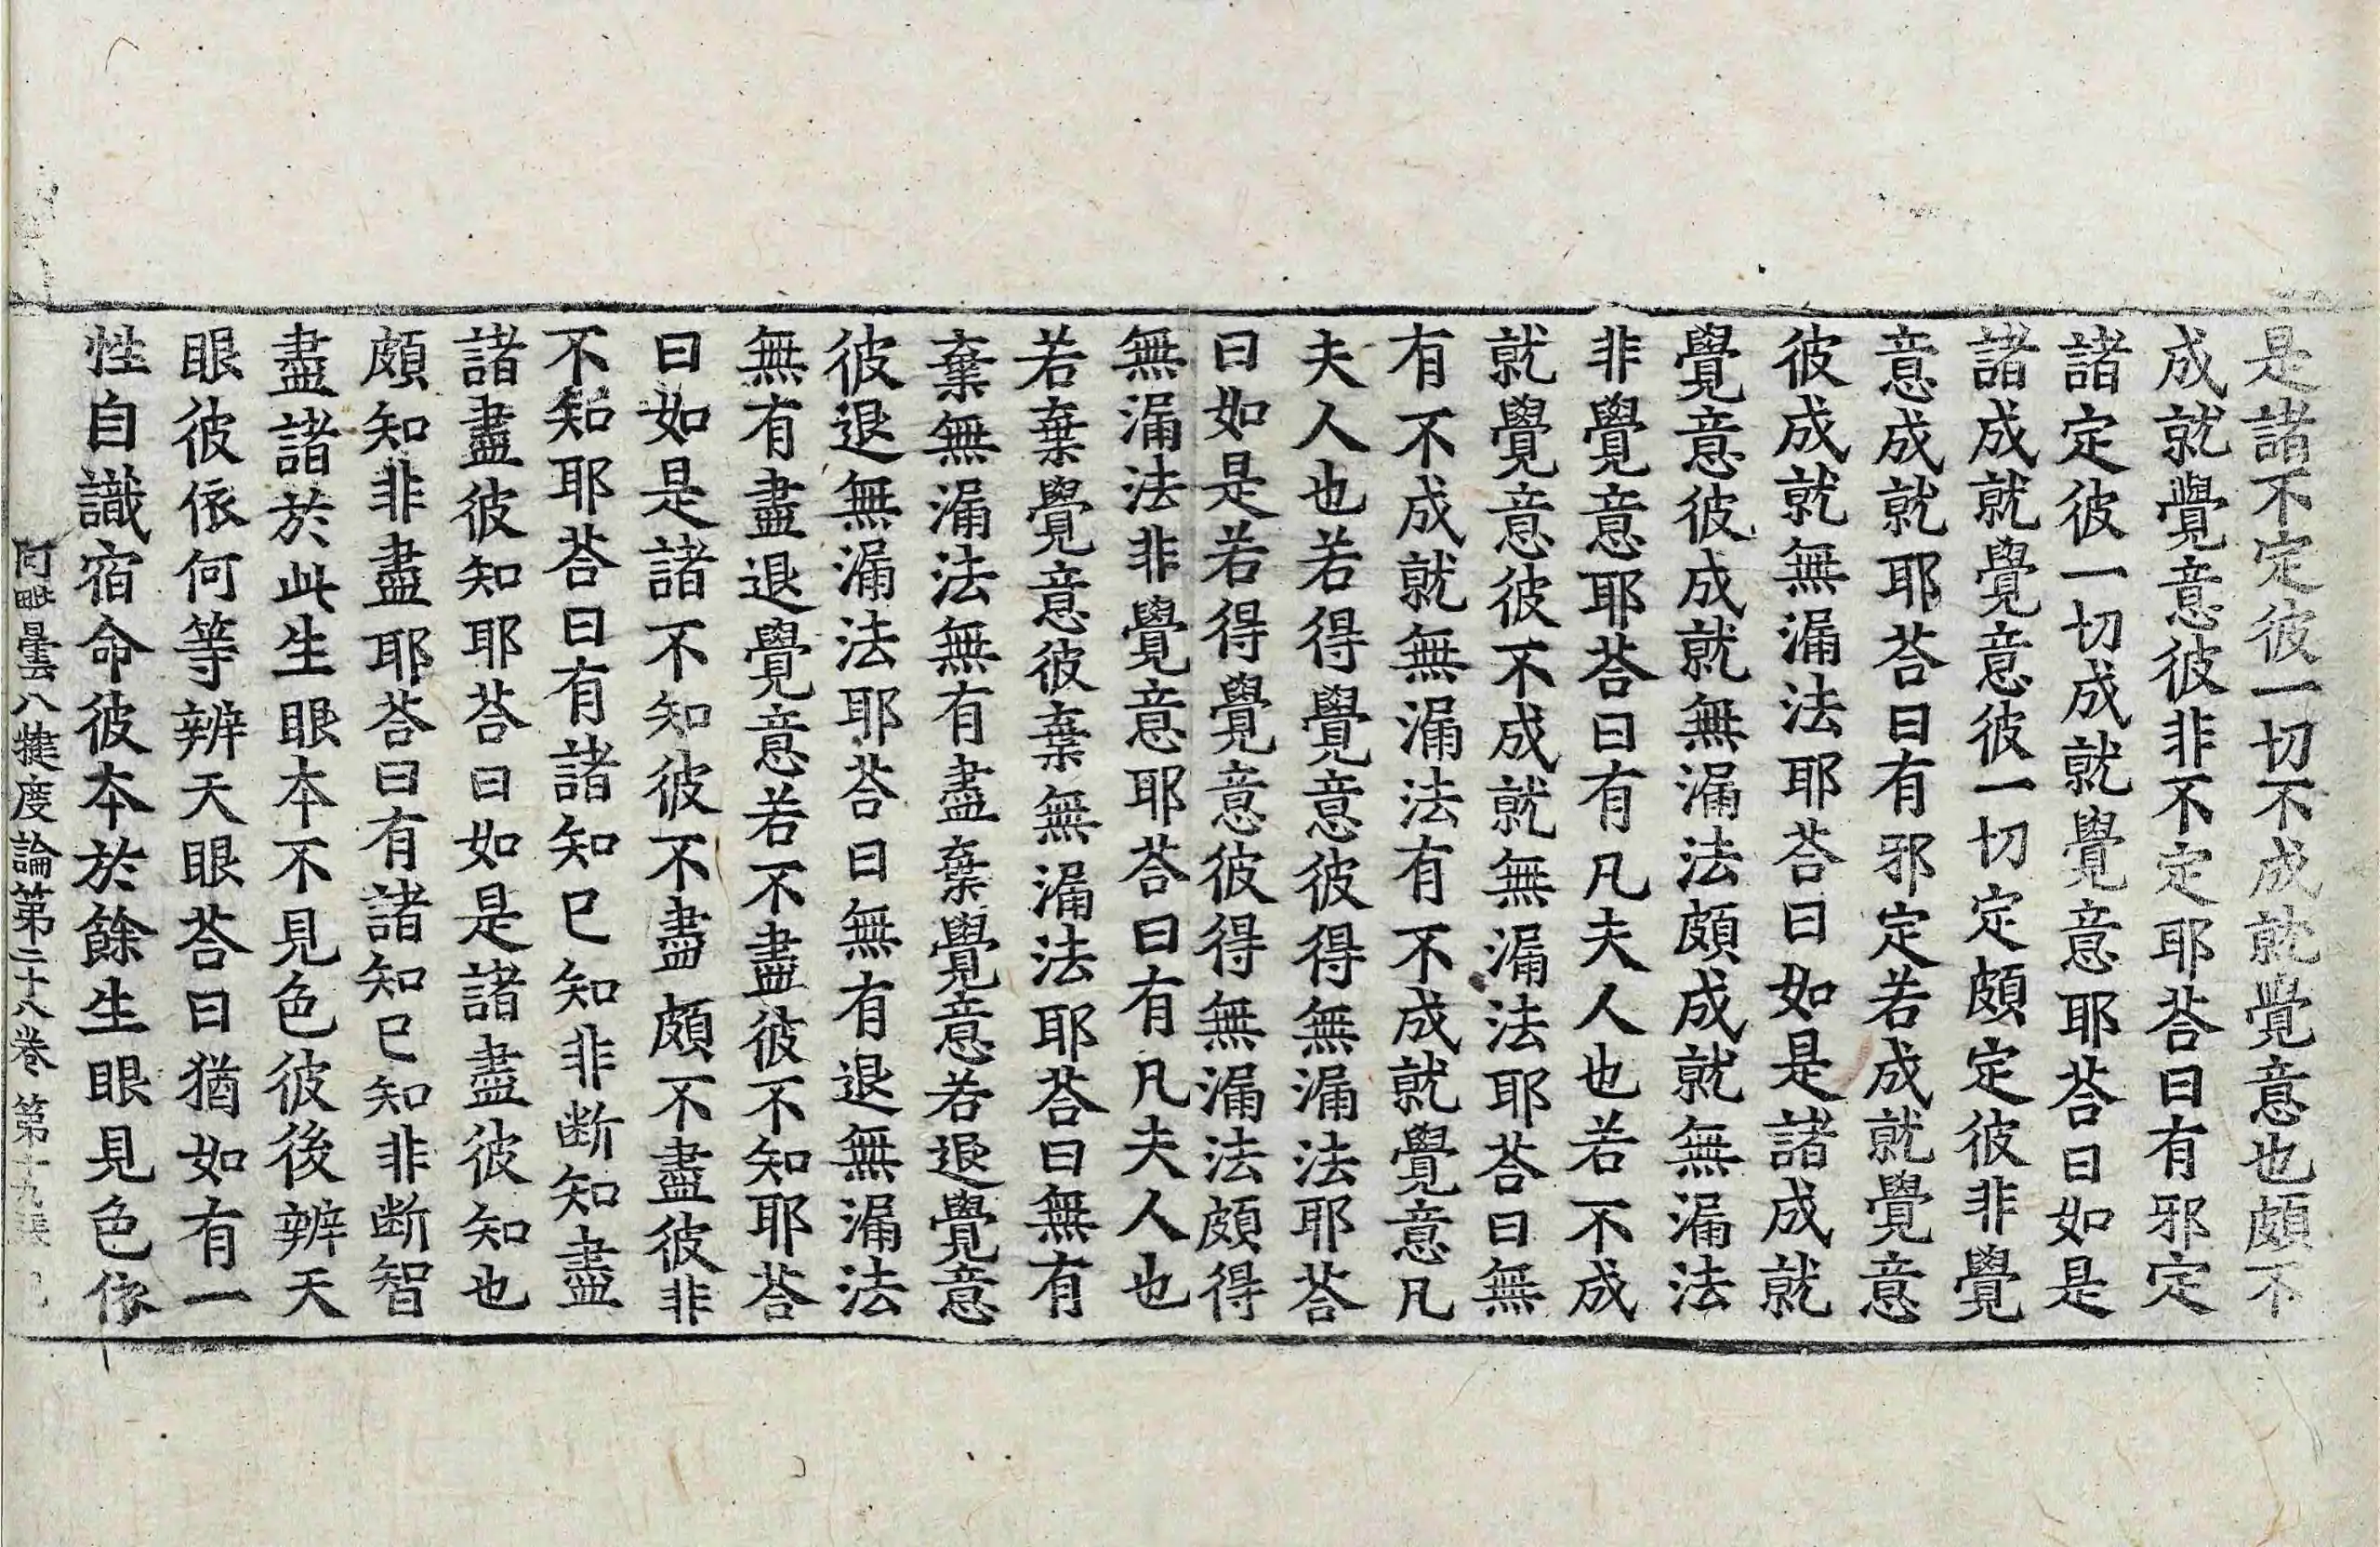 是諸不定彼一切不成就覺意也頗不
成就覺意彼非不定耶荅曰有邪定
諸定彼一切成就覺意耶荅曰如是
諸成就覺意彼一切定頗定彼非覺
意成就耶荅曰有邪定若成就覺意
彼成就無漏法耶荅曰如是諸成就
覺意彼成就無漏法頗成就無漏法
非覺意耶荅曰有凡夫人也若不成
就覺意彼不成就無漏法耶荅曰無
有不成就無漏法有不成就覺意凡
夫人也若得覺意彼得無漏法耶荅
曰如是若得覺意彼得無漏法頗得
無漏法非覺意耶荅曰有凡夫人也
若棄覺意彼棄無漏法耶荅曰無有
棄無漏法無有盡棄覺意若退覺意
彼退無漏法耶荅曰無有退無漏法
無有盡退覺意若不盡彼不知耶荅
曰如是諸不知彼不盡頗不盡彼非
不知耶荅曰有諸知已知非断知盡
諸盡彼知耶荅曰如是諸盡彼知也
頗知非盡耶荅曰有諸知已知非断智
盡諸於此生眼本不見色彼後辨天
眼彼依何等辨天眼荅曰猶如有一
性自識宿命彼本於餘生眼見色依
阿毗曇八揵度論第二十八卷 第十九張